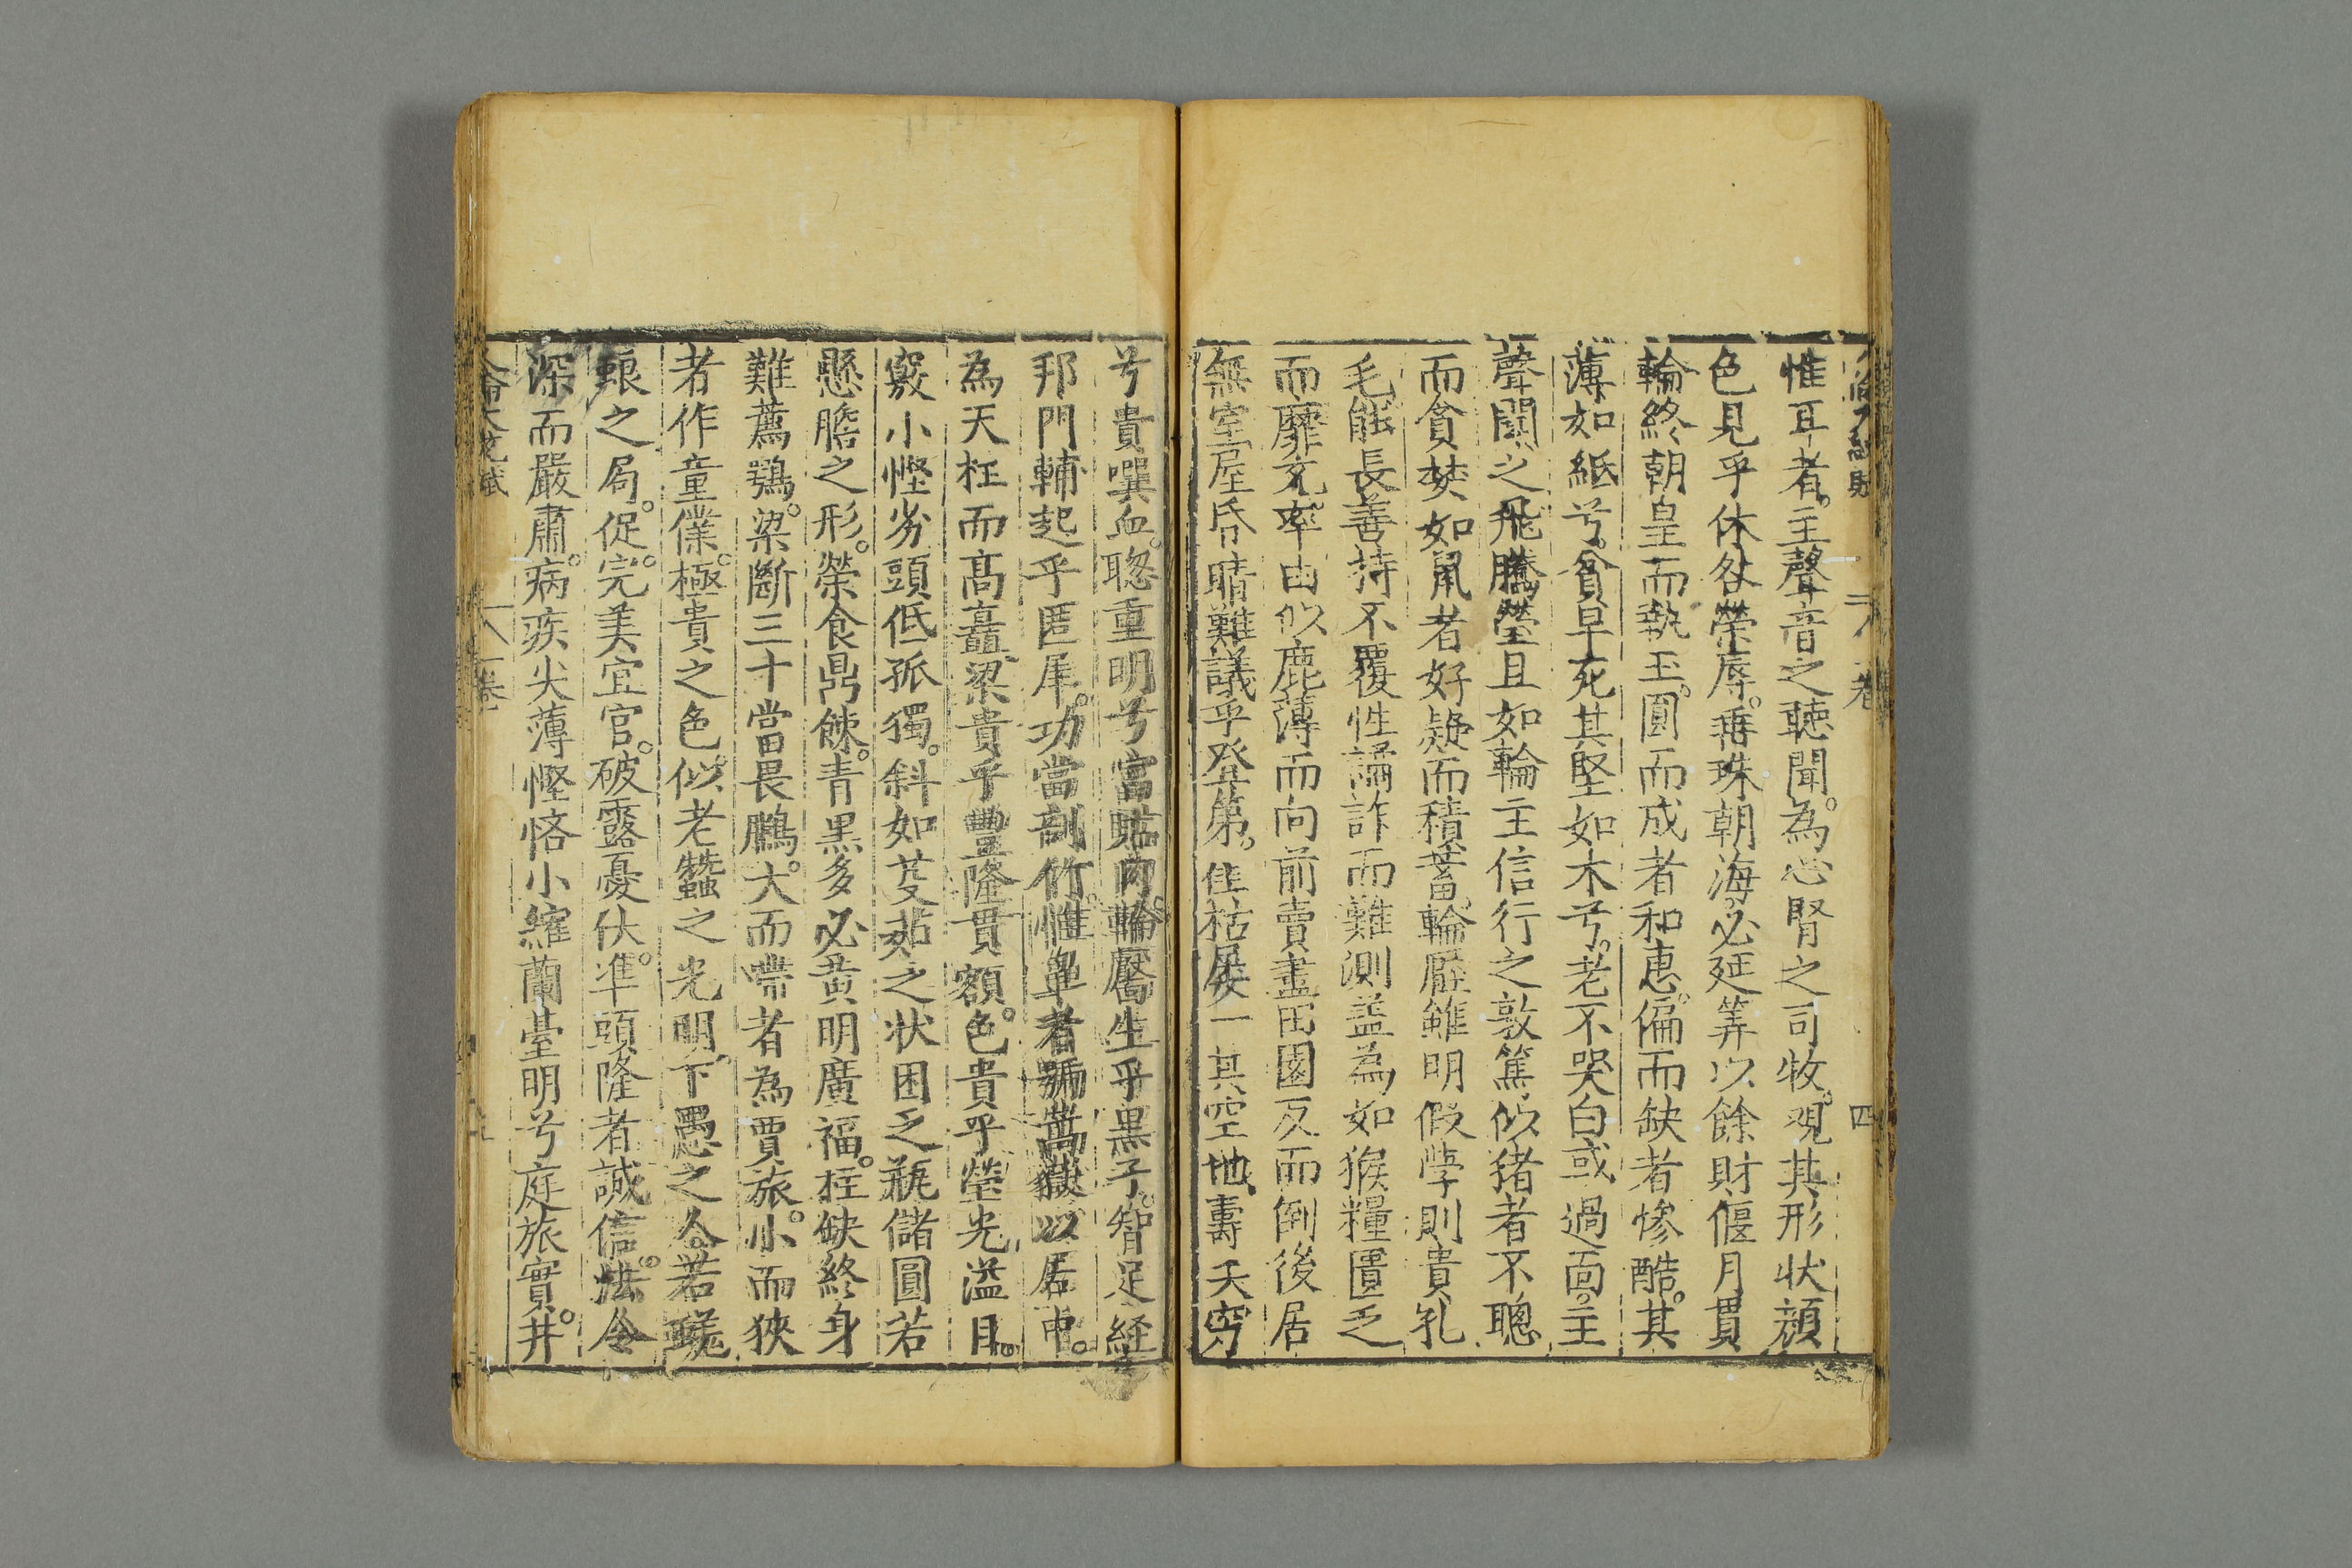 惟耳者。主聲音之聴聞。為心腎之司牧。觀其形状顔
色見乎休咎榮辱。垂珠朝海。必延筭以餘財偃月貫
輪終朝皇而執玉。圓而成者和惠。偏而缺者慘酷。其
薄如紙兮。貧早死其堅如木兮。老不哭白或過面。主
聲聞之飛騰瑩且如輪主信行之敦篤似猪者不聰
而貪婪如鼠者好疑而積蓄。輪䧢雖明假學則貴孔
毛能長善持不覆性譎詐而難測益為如猴糧匱乏
而靡充。率由似鹿薄而向前賣盡田園反而倒後居
無室屋昏暗難議乎登第。佳枯屡一其空地薄夭窍
兮貴噀血。聦重明兮富貼肉。輪靨生乎黒子。智足経
邦門輔起乎匿犀。功當剖竹。惟鼻者號嵩嶽以居中。
為天柱而髙矗。梁貴乎豊隆貫額。色貴乎瑩光溢目。
竅小慳劣頭低孤獨。斜如芟茘之状困乏瓶儲圓若
懸膽之形。榮食鼎餗。青黒多必黄明廣福。柱缺終身
難薦鶚。梁斷三十當畏鵩。大而㗣者為賈旅。小而狹
者作童僕。極貴之色似老蠶之光明。下愚之人若蜣
蜋之局促。完美宜官。破露憂伏。準頭隆者誠信。法令
深而嚴肅。病疾尖薄慳悋小縮蘭臺明兮庭旅實。井